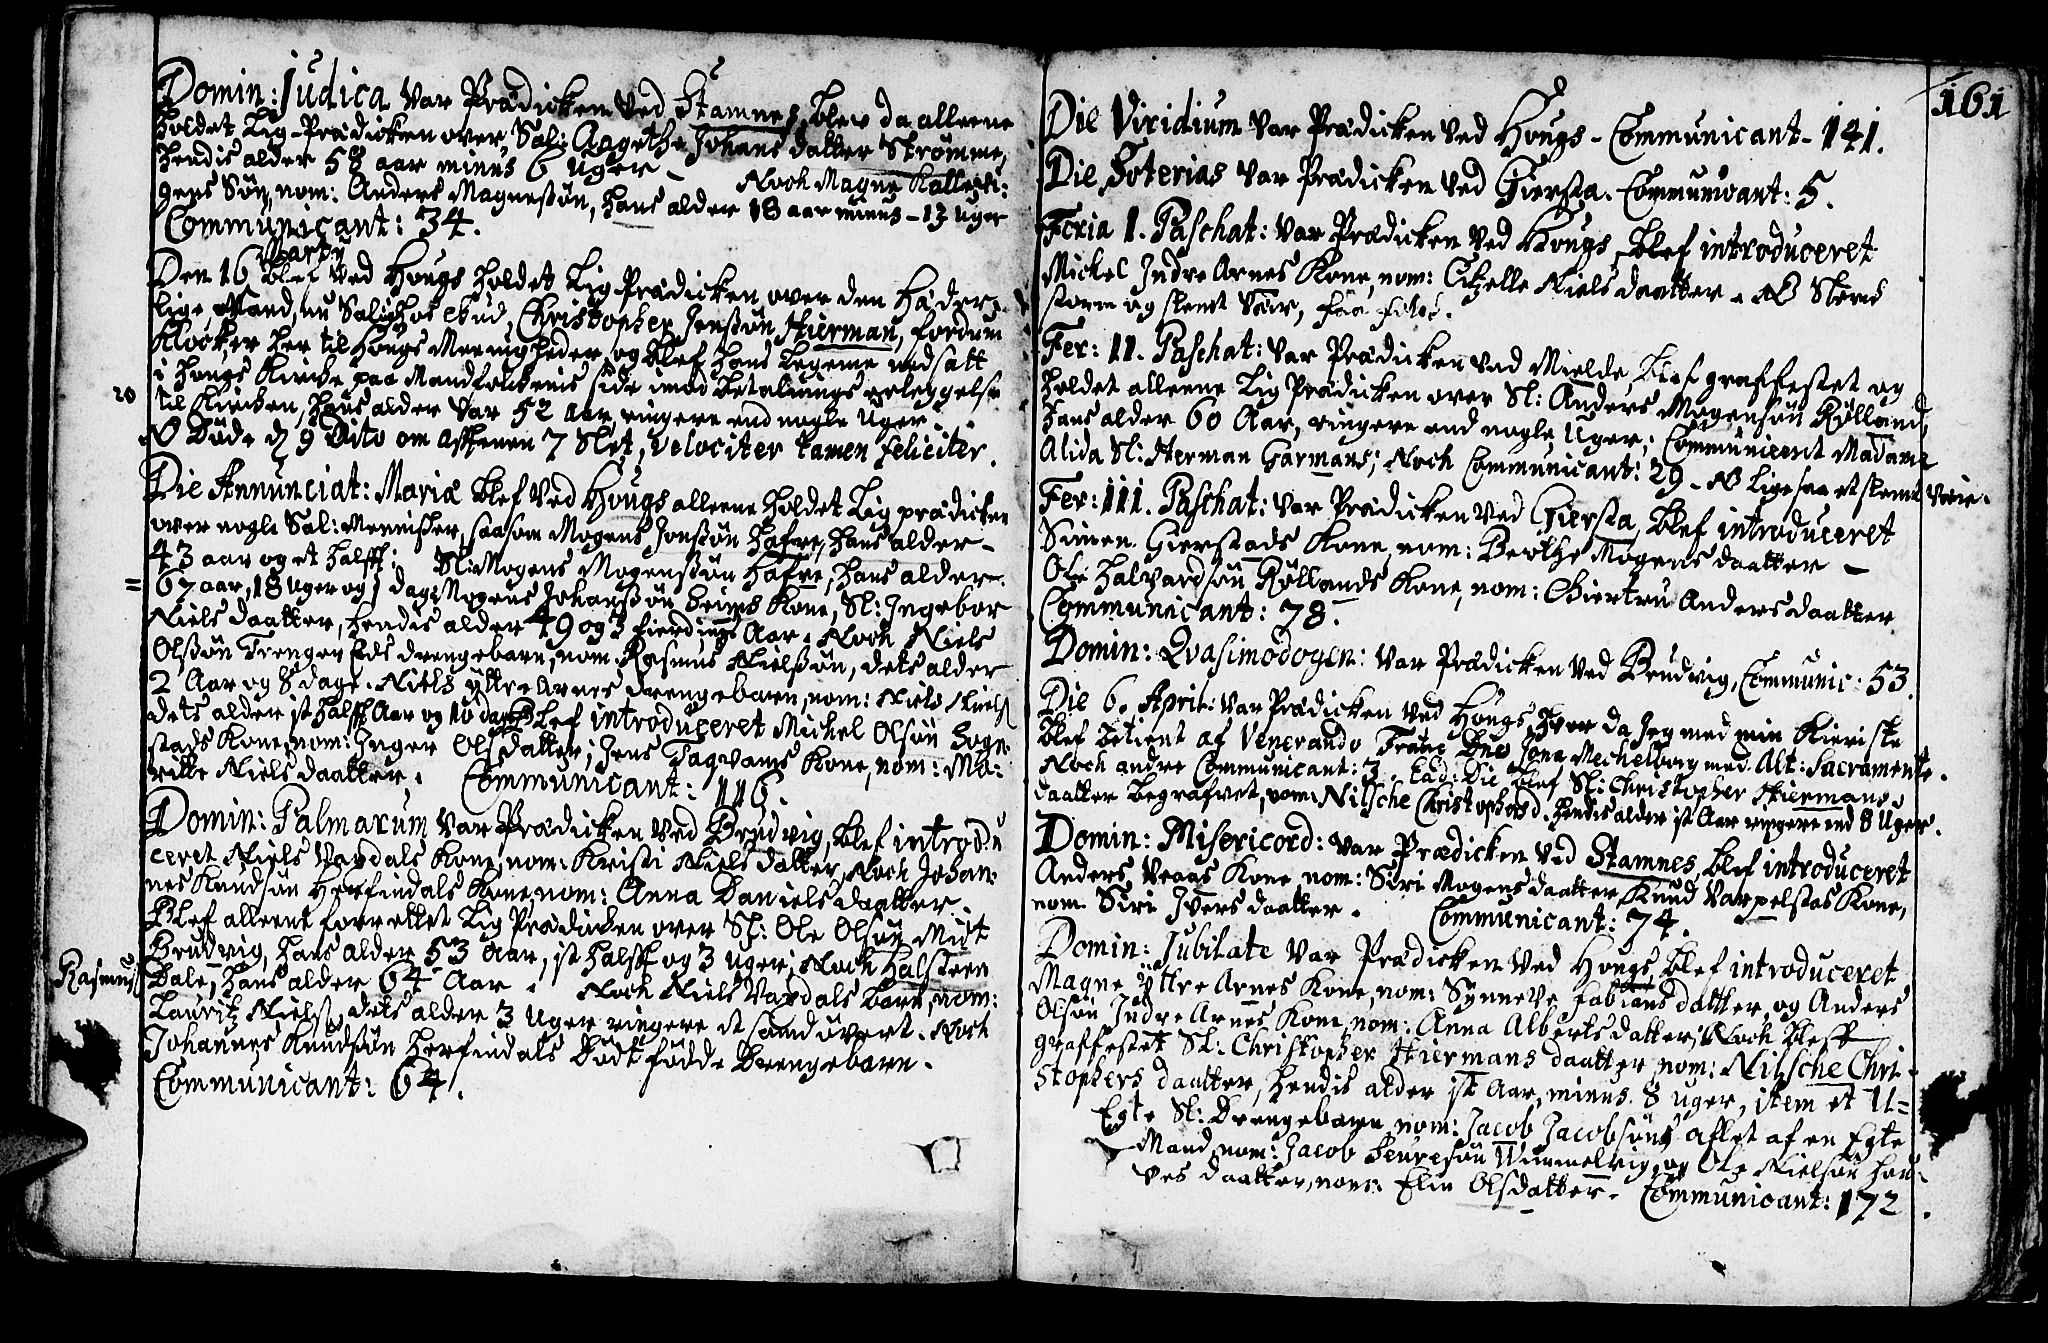 Domin: Judica var Prædicken ved Stamnes, blev da alleene
holdet Lig-Prædicken over, Sal: Aagethe Johans datter Strømme,
hendis alder 58 aar minus 6 Uger – Noch Magne Kallest:
gens Søn, nom: Anders Magnessøn, hans alder 18 aar minus – 13 uger
Communicant: 34.
Den 16 Martij blef ved Hougs holdet Lig-Prædicken over den Hæder,
lige Mand, nu Salig hos Gud, Christopher Jenssøn Hierman, fordum
Klocker her til Hougs Meenigheder, og blef hans Legeme nedsatt
i Hougs Kircke paa Mandfolckenis side imod betalnings erleggelse
20
til Kircken, hans alder var 52 aar ringere end nogle Uger.
NB Døde d 9 Dito om afftenen 7 Slet, velociter tamen feliciter.
Die Annunciat: Mariæ blef ved Hougs alleene holdet Lig prædicken
over nogle Sal: Mennisker, saasom Mogens Jonssøn Hafre, hans alder –
43 aar og et halft; Sl: Mogens Mogenssøn Hafre, hans alder –
= 67 aar, 18 uger og 1 dag; Mogens Johanssøn Seims Kone, Sl: Ingebor
Niels daatter, hendis alder 49 og 3 fierdings Aar. Noch Niels
Olssøn Trengereds drengebarn, nom. Rasmus Nielssøn, dets alder
2 Aar og 8 dage. Niels Yttre Arnes drengebarn, nom: Niels Nielss
dets alder it halft Aar og 10 dage. Blef introduceret Mickel Olsøn Sogn
stads Kone, nom: Inger Olsdatter; Jens Dagvams Kone, nom: Ma:
ritte Niels daatter. Communicant: 116.
Domin: Palmarum var Prædicken ved Brudvig, blef introdu
ceret Niels Vardals Kone, nom: Kristi Niels datter, Noch Johan
nes Knudsøn Herfindals Kone, nom: Anna Daniels daatter.
Blef alleent forrettet Lig Prædicken over Sl: Ole Olsøn Mit
Brudvig, hans alder 53 Aar, it halft og 3 uger; Noch Halsteen
Rasmuss Dale, hans alder 64 Aar. Noch Niels Vardals barn, nom:
Lauritz Nielss, dets alder 3 Uger ringere et samd. Noch
Johannes Knudsøn Herfindals Dødt fødde Drengebarn.
Communicant: 64.
161
Die Viridium var Prædicken ved Hougs – Communicant – 141.
Die Soterias var Prædicken ved Giersta. Communicant: 5.
Feria 1. Paschat: var Prædicken ved Hougs, blef introduceret
Mickel Indre Arnes Kone, nom: Citzelle Niels daatter. NB Sterck
storm og slemt Veir, faa folck.
Fer: 11. Paschat: var Prædicken ved Mielde, blef graffestet og
holdet alleene Lig Prædicken over Sl: Anders Mogensøn Rølland,
hans alder 60 Aar, ringere end nogle Uger; Communicerit Madame
Alida Sl: Herman Garmans; Noch Communicant: 29 – NB Lige saa et slemt Veir.
Fer: 111. Paschat: var Prædicken ved Giersta, blef introduceret
Simen Gierstads Kone, nom: Berthe Mogens daatter –
Ole Halvardsøn Røllands Kone, nom: Giertru Anders daatter
Communicant: 78.
Domin: Qvasimodogen: var Prædicken ved Brudvig, Communic: 53.
Die 6. April: var Prædicken ved Hougs, hvor da Jeg med min Kieriste
blef betient af Venerando Fratre Dno Jona Mechelborg med Alt: Sacramente.
Noch andre Communicant: 3. Ead: Die blef Sl: Christopher Hiermans
daatter begrafvet, nom: Nilsche Christophersd. hendis alder it Aar ringere end 8 Uger.
Domin: Misericord: var Prædicken ved Stamnes, blef introduceret
Anders Vraas Kone nom: Siri Mogens daatter, Knud Varpelstas Kone,
nom Siri Ivers daatter. Communicant: 74.
Domin: Jubilate var Prædicken ved Hougs, blef introduceret
Magne Yttre Arnes Kone, nom: Synneve Fabians datter, og Anders
Olsøn Indre Arnes Kone, nom: Anna Alberts datter; Noch bleff
graffestet Sl: Christopher Hiermans daatter, nom: Nilsche Chri-
stophers daatter, hendis alder it Aar, minus 8 uger, item et U=
Egte Sl: Drengebarn, nom: Jacob Jacobsøn, aflet af en Egte
Mand, nom: Jacob Seuresøn Wummelvig, og Ole Nielsøn Hou-
ves daatter, nom: Elin Olsdatter. Communicant: 172.